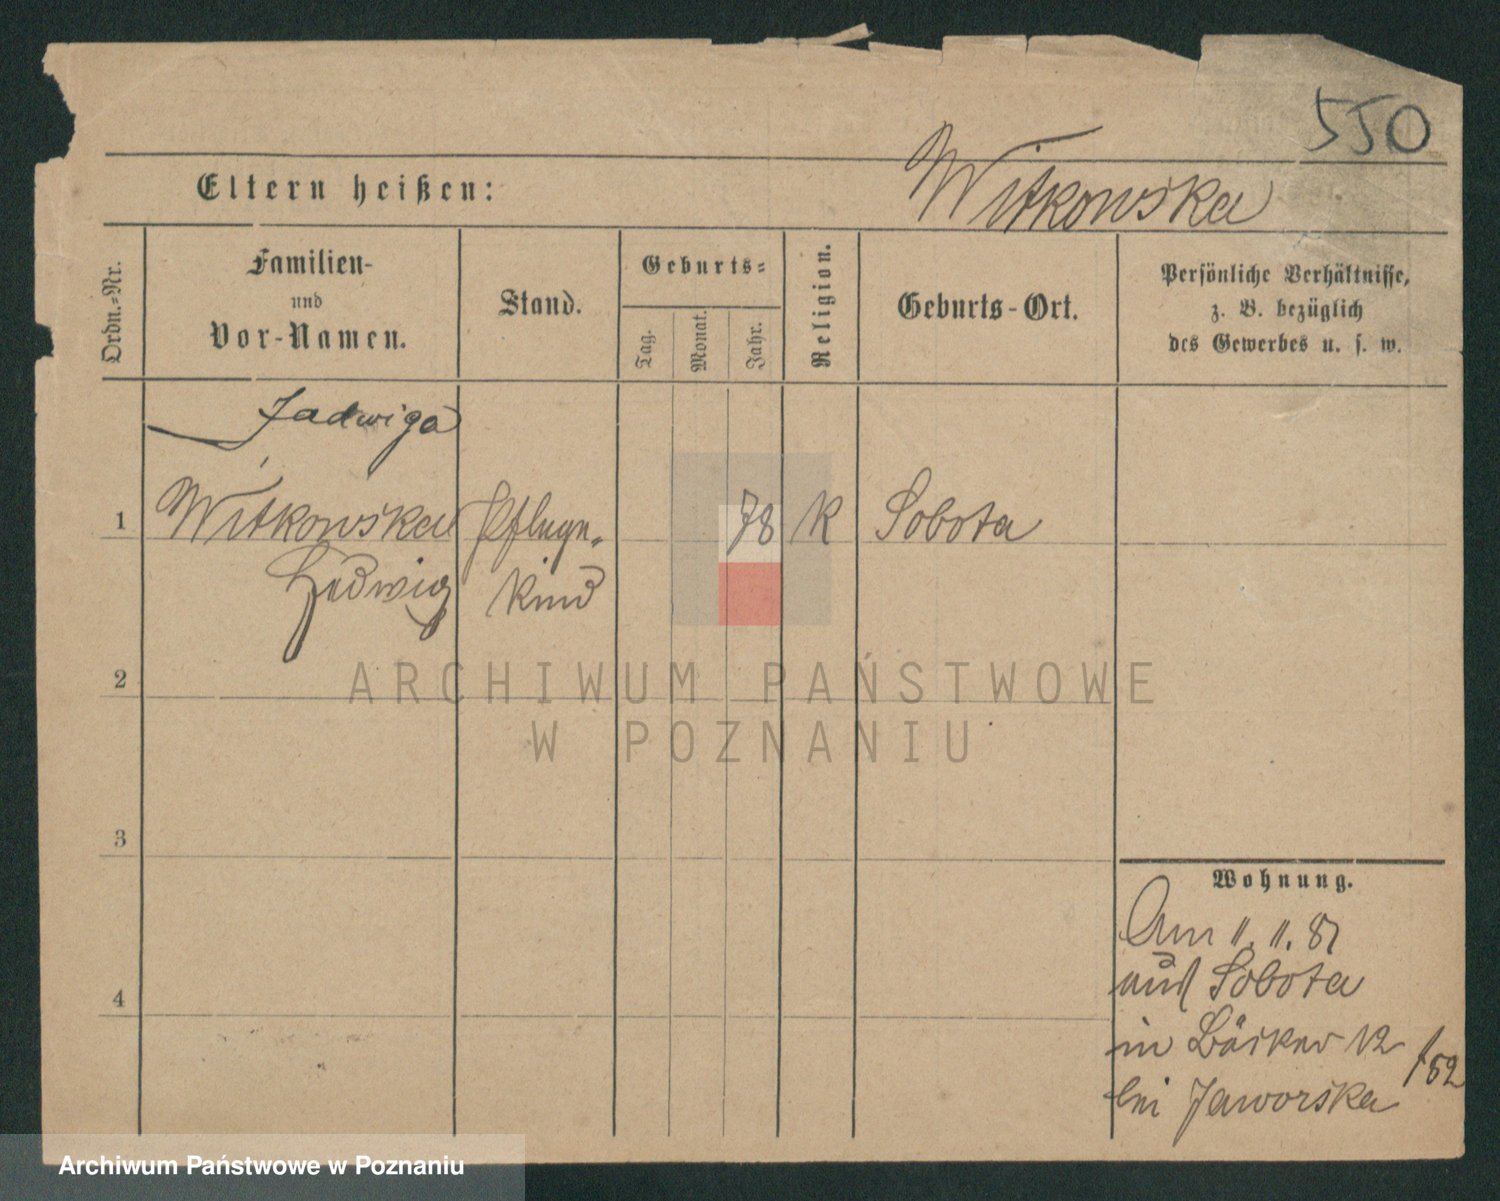 550
Eltern heißen: Witkowska
Ordn.-Nr.
Familien-
und
Vor-Namen.
Stand.
Geburts-
Tag.
Monat.
Jahr.
Religion.
Geburts-Ort.
Persönliche Verhältnisse,
z. B. bezüglich
des Gewerbes u. s. w.
Jadwiga
1 Witkowska Pflege- 78 K Sobota
Hedwig kind
2
3
4
Wohnung.
Am 11. 11. 81
aus Sobota
in Bäcker 12
bei Jaworska
ARCHIWUM PAŃSTWOWE
W POZNANIU
Archiwum Państwowe w Poznaniu